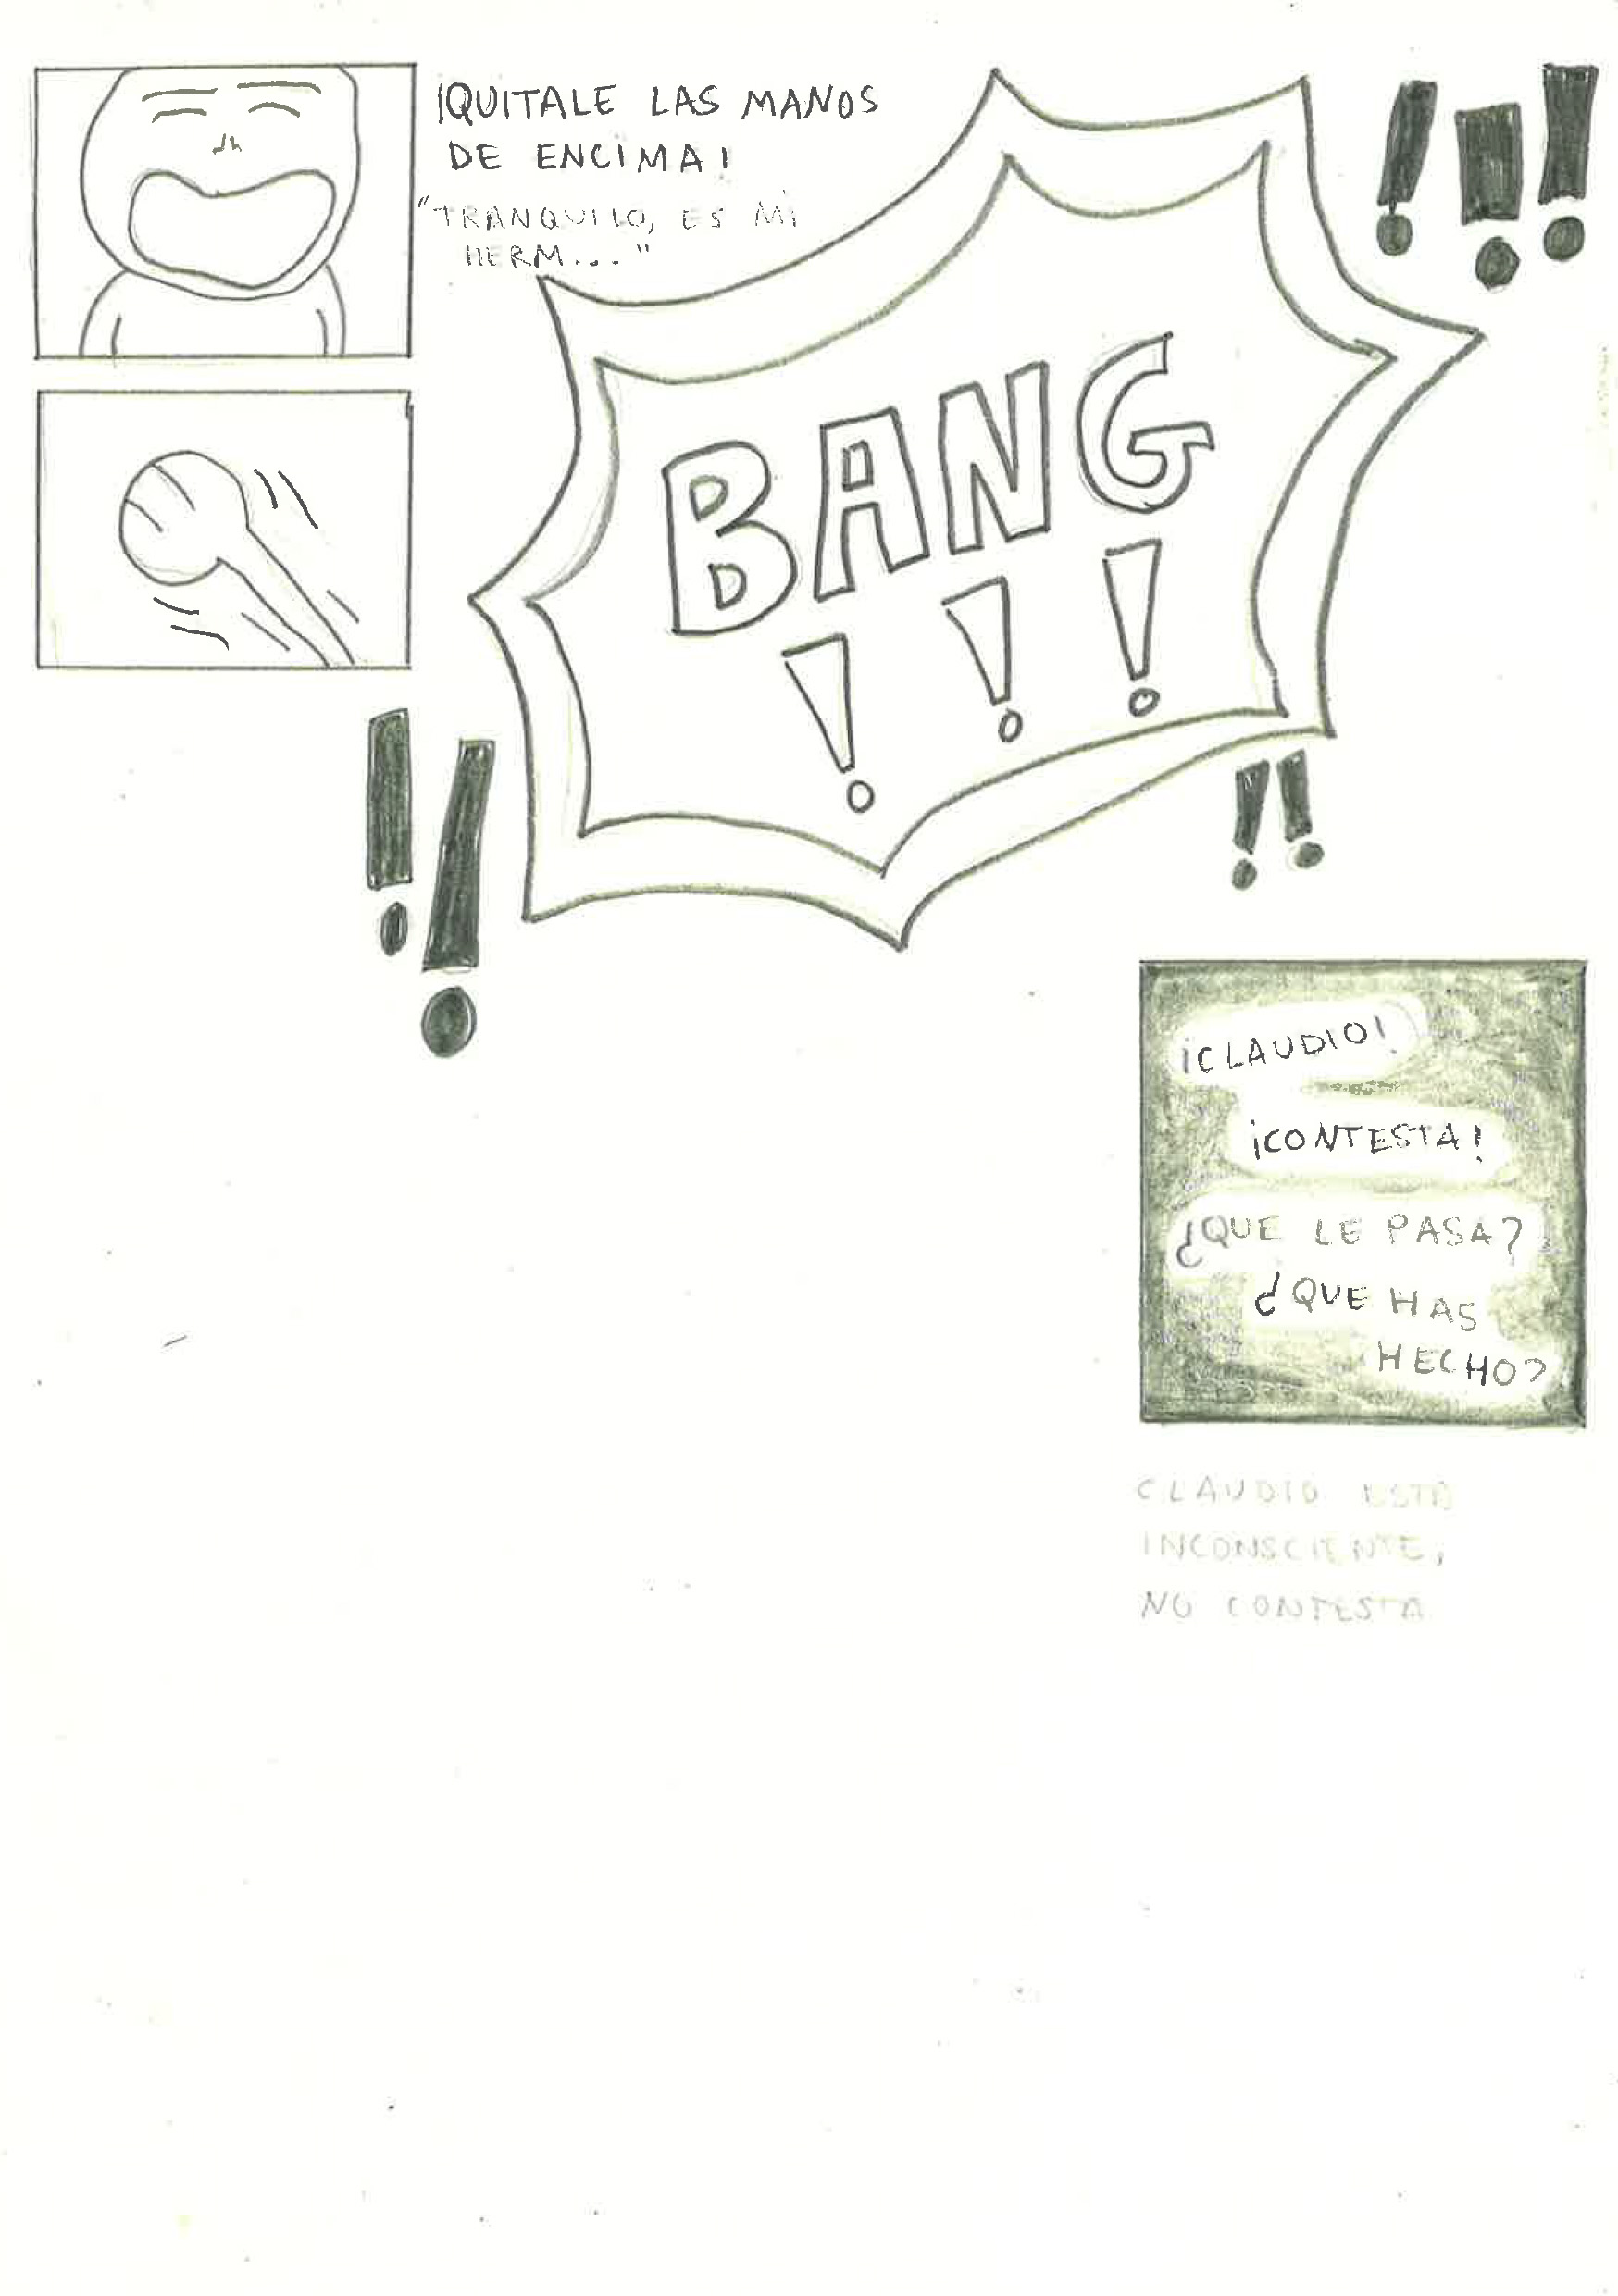 ¡QUITALE LAS MANOS
DE ENCIMA!
"TRANQUILO, ES MI
HERM..."
BANG
!!!
!!!
!!
!!
¡CLAUDIO!
¡CONTESTA!
¿QUE LE PASA?
¿QUE HAS
HECHO?
CLAUDIO ESTA
INCONSCIENTE,
NO CONTESTA